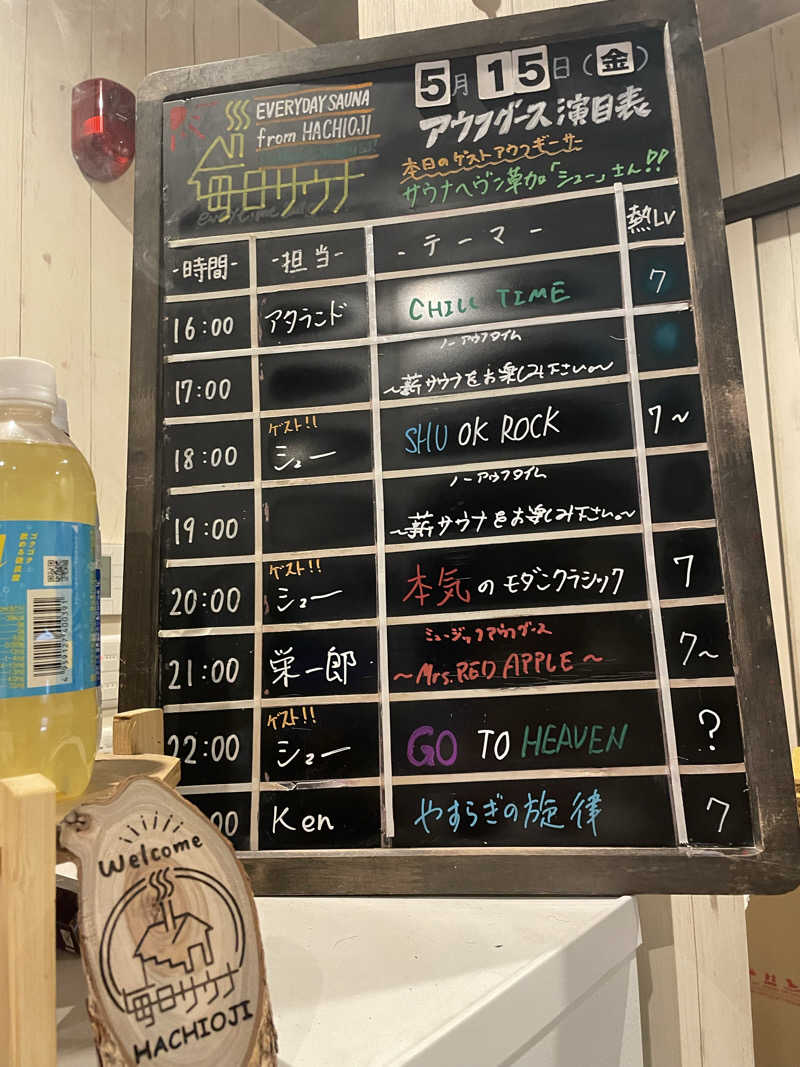 EVERYDAY SAUNA
from HACHIOJI
毎日サウナ
5月15日(金)
アウフグース演目表
本日のゲストアウフギーサー
サウナヘヴン草加「シュー」さん!!
-時間- -担当- -テーマ- 熱Lv
16:00 アタランド CHILL TIME 7
17:00 ノーアウフタイム
~薪サウナをお楽しみ下さい。~
18:00 ゲスト!! シュー SHU OK ROCK 7~
19:00 ノーアウフタイム
~薪サウナをお楽しみ下さい。~
20:00 ゲスト!! シュー 本気のモダンクラシック 7
21:00 栄一郎 ミュージックアウフグース
~Mrs.RED APPLE~ 7~
22:00 ゲスト!! シュー GO TO HEAVEN ?
:00 Ken やすらぎの旋律 7
Welcome
毎日サウナ
HACHIOJI